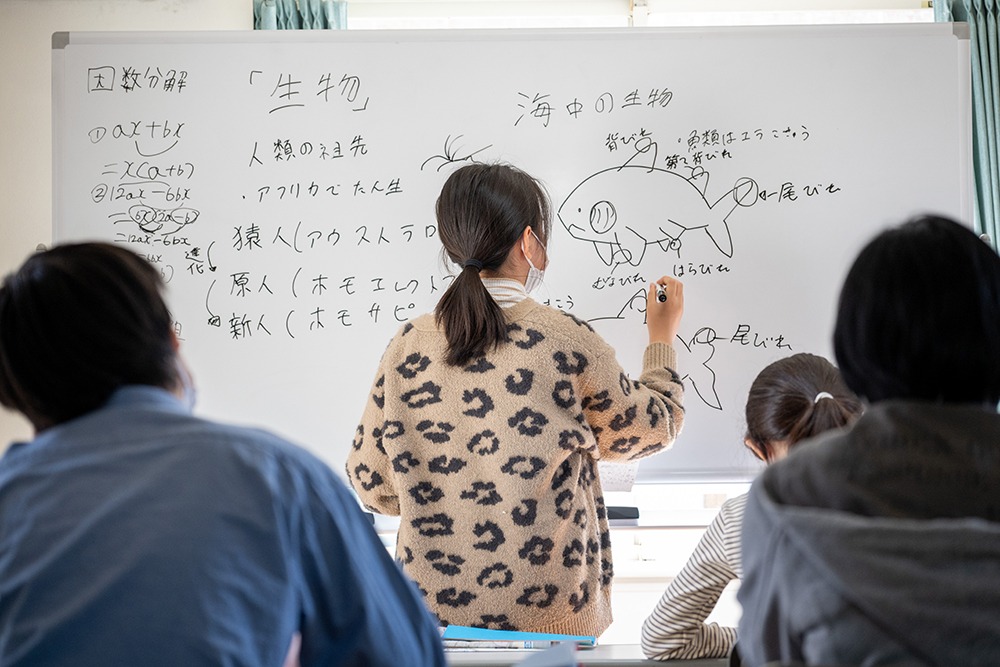 因数分解
① ax+bx
=x(a+b)
② 12ax-6bx
=6x(2a-b)
=12ax-6bx
「生物」
人類の祖先
・アフリカでたん生
猿人(アウストラロ
進化
原人(ホモエレクト
新人(ホモサピ
海中の生物
背びれ
・魚類はエラこきゅう
第2背びれ
尾びれ
むなびれ
はらびれ
尾びれ